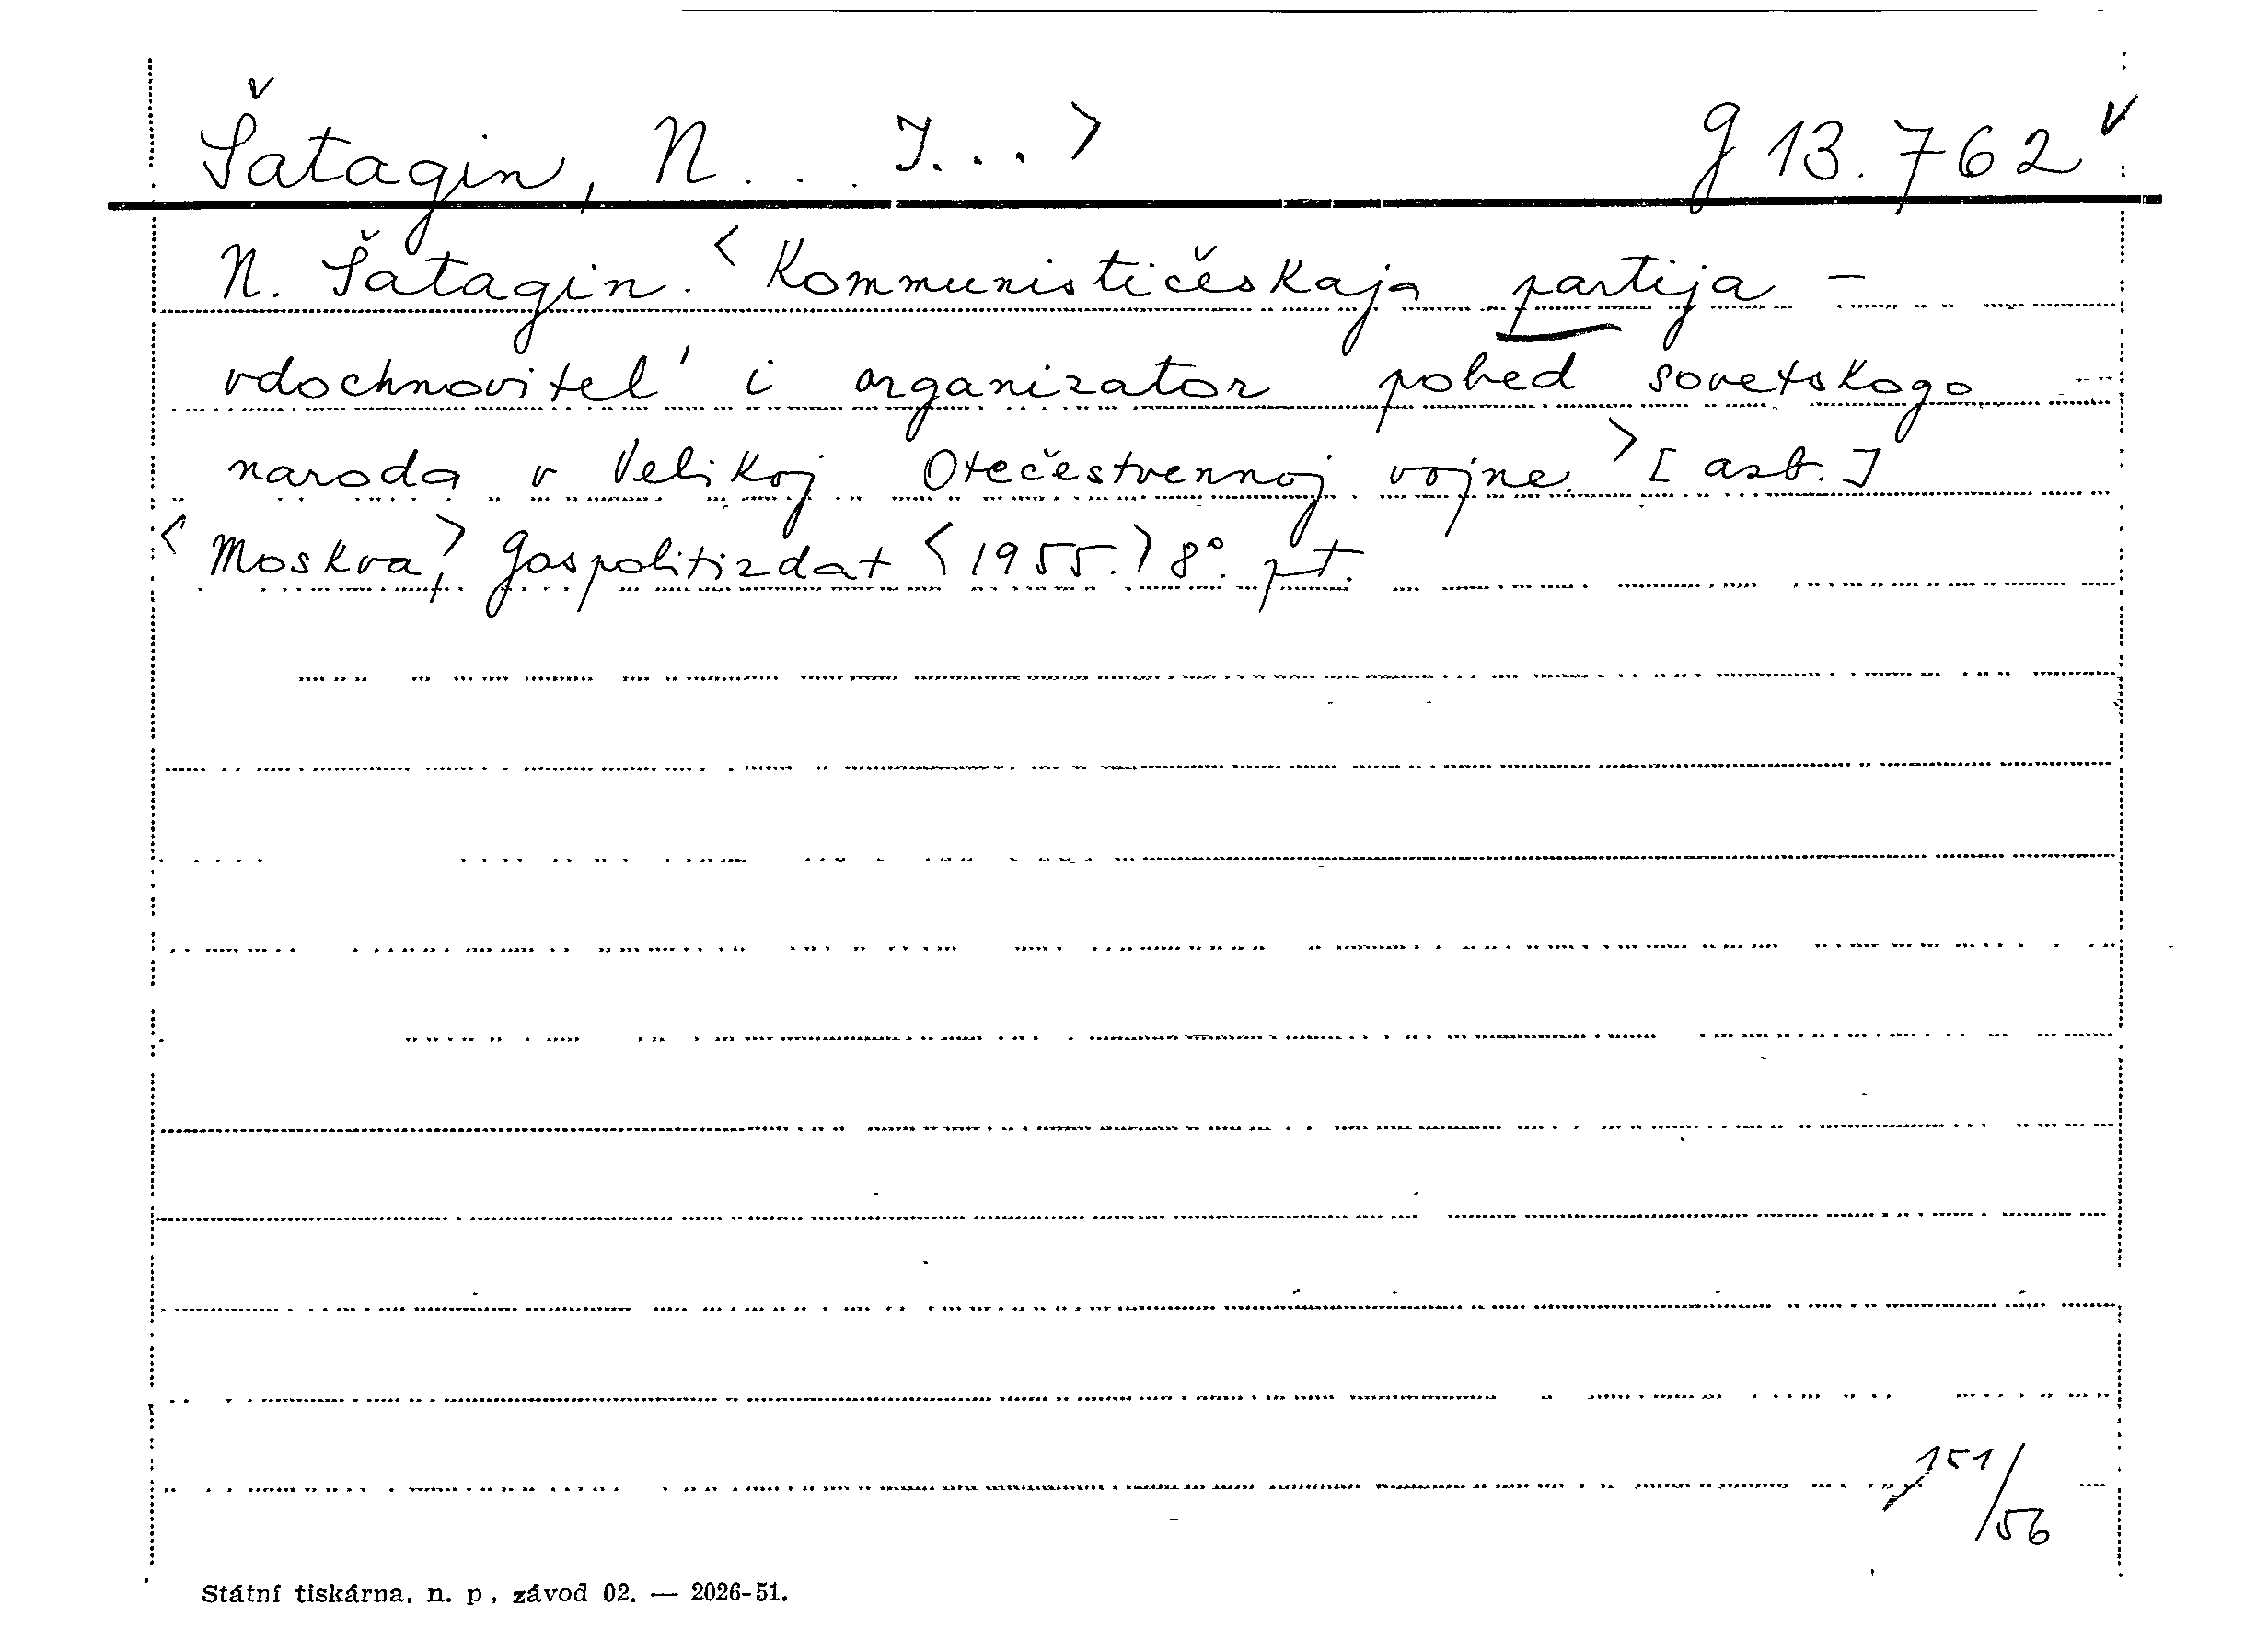 Šatagin, N... I...> g 13.762
N. Šatagin. <Kommunističeskaja partija —
vdochnovitel' i organizator pobed sovetskogo
naroda v Velikoj Otečestvennoj vojne.> [azb.]
<Moskva,> Gospolitizdat <1955.> 8°. pt.
151/56
Státní tiskárna, n. p., závod 02. — 2026-51.